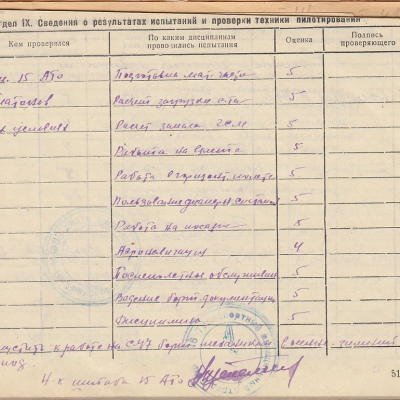 дел IX. Сведения о результатах испытаний и проверки техники пилотирования
Кем проверялся
По каким дисциплинам проводились испытания
Оценка
Подпись проверяющего
15 АТО Подготовка мат. части 5
Расчет загрузки с-та 5
Расчет запаса ГСМ 5
Работа на взлете 5
Работа в горизонт. полете 5
Пользование 5
Работа на посадке 5
Аэронавигация 4
Послеполетное обслуживан 5
Ведение борт. документации 5
Дисциплина 5
к работе на борт механиком в зимний
штаба 15 АТО
51